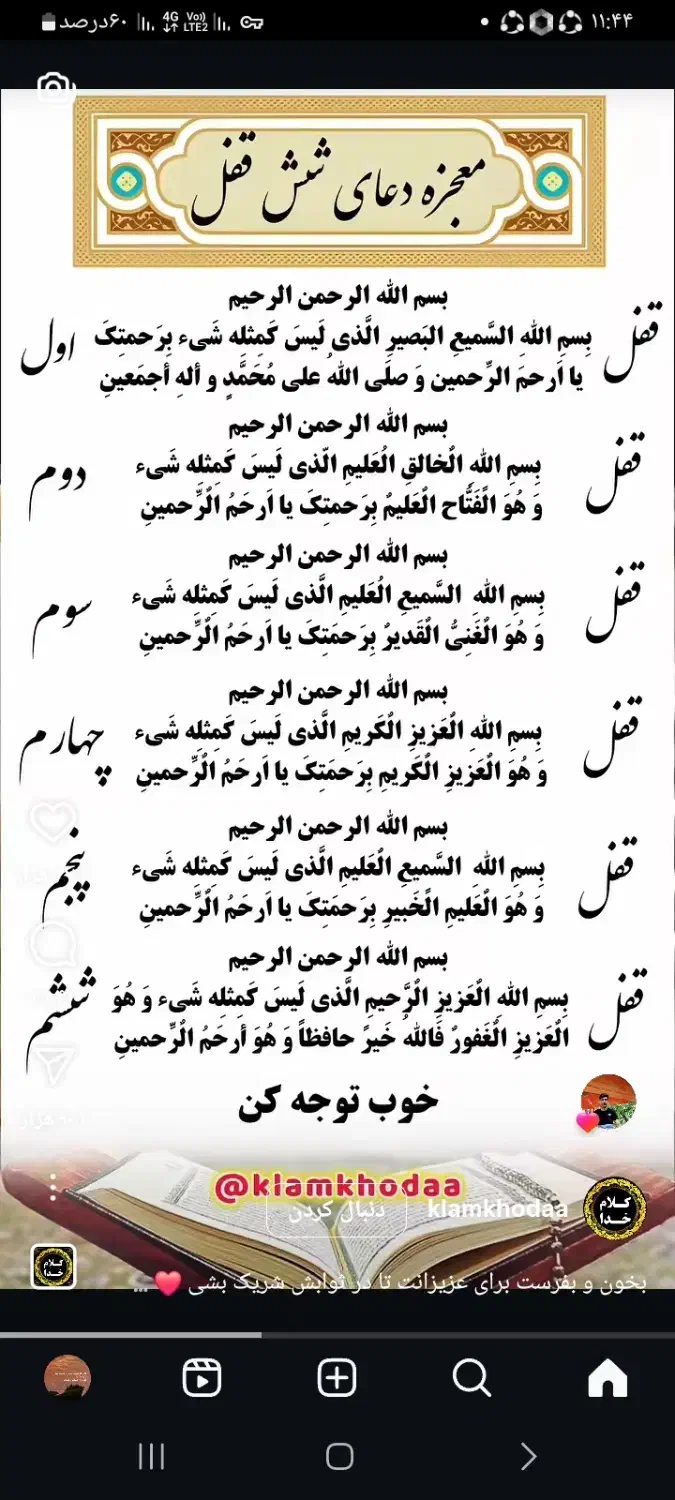 ۶۰درصد
4G
Vo))
LTE2
۱۱:۴۴
معجزه دعای شش قفل
بسم الله الرحمن الرحیم
قفل اول
بِسمِ اللهِ السَّمیعِ البَصیرِ الَّذی لَیسَ کَمِثلِه شَیء بِرَحمتِکَ
یا اَرحمَ الرِّحمین وَ صلَی اللهُ علی مُحَمَّدٍ و ألهِ أجمَعینِ
بسم الله الرحمن الرحیم
قفل دوم
بِسمِ اللهِ الْخالقِ الْعَلیمِ الّذی لَیسَ کَمِثلِه شَیء
وَ هُوَ الْفَتَّاح الْعَلیمُ بِرَحمتِکَ یا اَرحَمُ الْرَِّحمینِ
بسم الله الرحمن الرحیم
قفل سوم
بِسمِ اللهِ السَّمیعِ الْعَلیمِ الَّذی لَیسَ کَمِثلِه شَیء
وَ هُوَ الْغَنِیُّ الْقَدیرُ بِرَحمَتِکَ یا اَرحَمُ الْرَِّحمینِ
بسم الله الرحمن الرحیم
قفل چهارم
بِسمِ اللهِ الْعَزیزِ الْکَریمِ الَّذی لَیسَ کَمِثلِه شَیء
وَ هُوَ الْعَزیزِ الْکَریمِ بِرَحمَتِکَ یا اَرحَمُ الْرَِّحمینِ
بسم الله الرحمن الرحیم
قفل پنجم
بِسمِ اللهِ السَّمیعِ الْعَلیمِ الَّذی لَیسَ کَمِثلِه شَیء
وَ هُوَ الْعَلیمِ الْخَبیرِ بِرَحمَتِکَ یا اَرحَمُ الْرَِّحمینِ
بسم الله الرحمن الرحیم
قفل ششم
بِسمِ اللهِ الْعَزیزِ الْرَّحیمِ الَّذی لَیسَ کَمِثلِه شَیء وَ هُوَ
الْعَزیزِ الْغَفورُ فَاللهُ خَیرً حافظاً وَ هُوَ أرحَمُ الْرَِّحمینِ
خوب توجه کن
@klamkhodaa
کلام خدا
klamkhodaa
دنبال کردن
کلام خدا
بخون و بفرست برای عزیزانت تا در ثوابش شریک بشی ❤️ ...